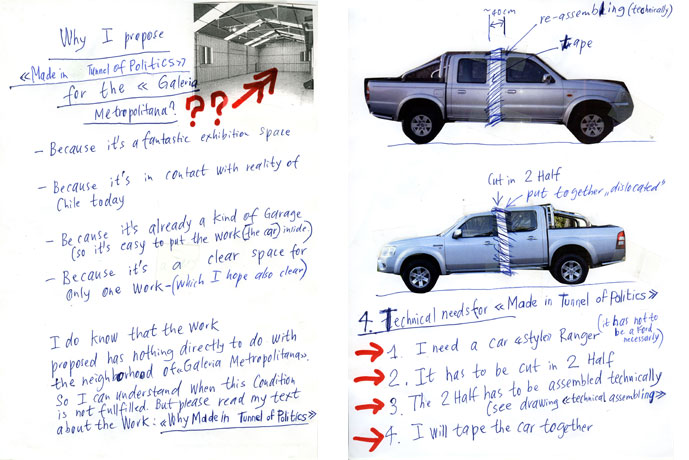 Why I propose
«Made in Tunnel of Politics»
for the «Galeria
Metropolitana?
??
– Because it's a fantastic exhibition space
– Because it's in contact with reality of
Chile today
– Because it's already a kind of Garage
(so it's easy to put the work (the car) inside)
– Because it's a clear space for
only one work – (which I hope also clear)
I do know that the work
proposed has nothing directly to do with
the neighborhood of «Galeria Metropolitana».
So I can understand when this Condition
is not fullfilled. But please read my text
about the Work: «Why Made in Tunnel of Politics»
~40cm
re-assembling (technically)
tape
Cut in 2 Half
put together „dislocated"
4. Technical needs for «Made in Tunnel of Politics»
1. I need a car «style» Ranger (it has not to
be a Ford
necessarily)
2. It has to be cut in 2 Half
3. The 2 Half has to be assembled technically
(see drawing «technical assembling»
4. I will tape the car together